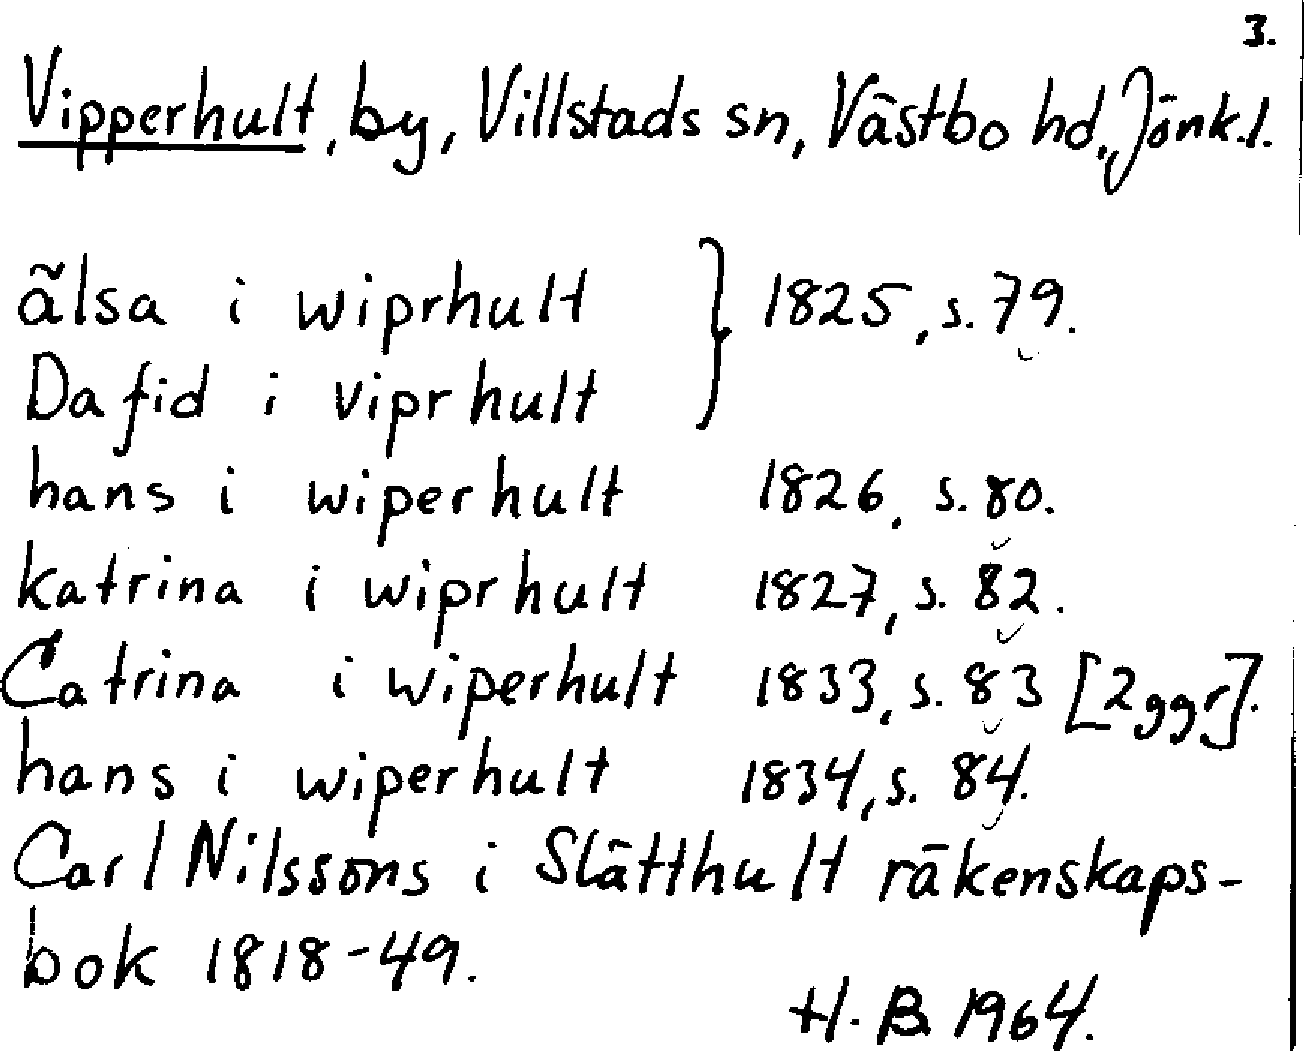 3.
Vipperhult, by, Villstads sn, Västbo hd, Jönk.l.
älsa i wiprhult } 1825, s. 79.
Dafid i viprhult
hans i wiperhult 1826, s. 80.
katrina i wiprhult 1827, s. 82.
Catrina i wiperhult 1833, s. 83 [2ggr].
hans i wiperhult 1834, s. 84.
Carl Nilssons i Slätthult räkenskaps-
bok 1818-49.
H. B. 1964.